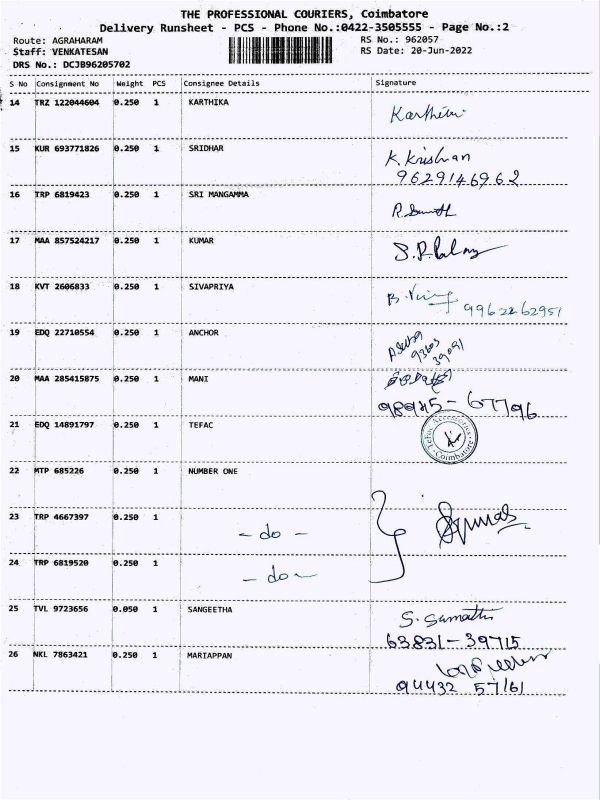 THE PROFESSIONAL COURIERS, Coimbatore
Delivery Runsheet - PCS - Phone No.:0422-3505555 - Page No.:2
Route: AGRAHARAM RS No.: 962057
Staff: VENKATESAN RS Date: 20-Jun-2022
DRS No.: DCJB96205702
S No Consignment No Weight PCS Consignee Details Signature
14 TRZ 122044604 0.250 1 KARTHIKA
15 KUR 693771826 0.250 1 SRIDHAR K. Krishnan
9629146962
16 TRP 6819423 0.250 1 SRI MANGAMMA
17 MAA 857524217 0.250 1 KUMAR
18 KVT 2606833 0.250 1 SIVAPRIYA
9962262951
19 EDQ 22710554 0.250 1 ANCHOR
93603
39091
20 MAA 285415875 0.250 1 MANI
98945-67796
21 EDQ 14891797 0.250 1 TEFAC
Coimbatore
22 MTP 685226 0.250 1 NUMBER ONE
23 TRP 4667397 0.250 1 - do -
24 TRP 6819520 0.250 1 - do -
25 TVL 9723656 0.050 1 SANGEETHA S. Sumathi
63831-39715
26 NKL 7863421 0.250 1 MARIAPPAN
94432 57161